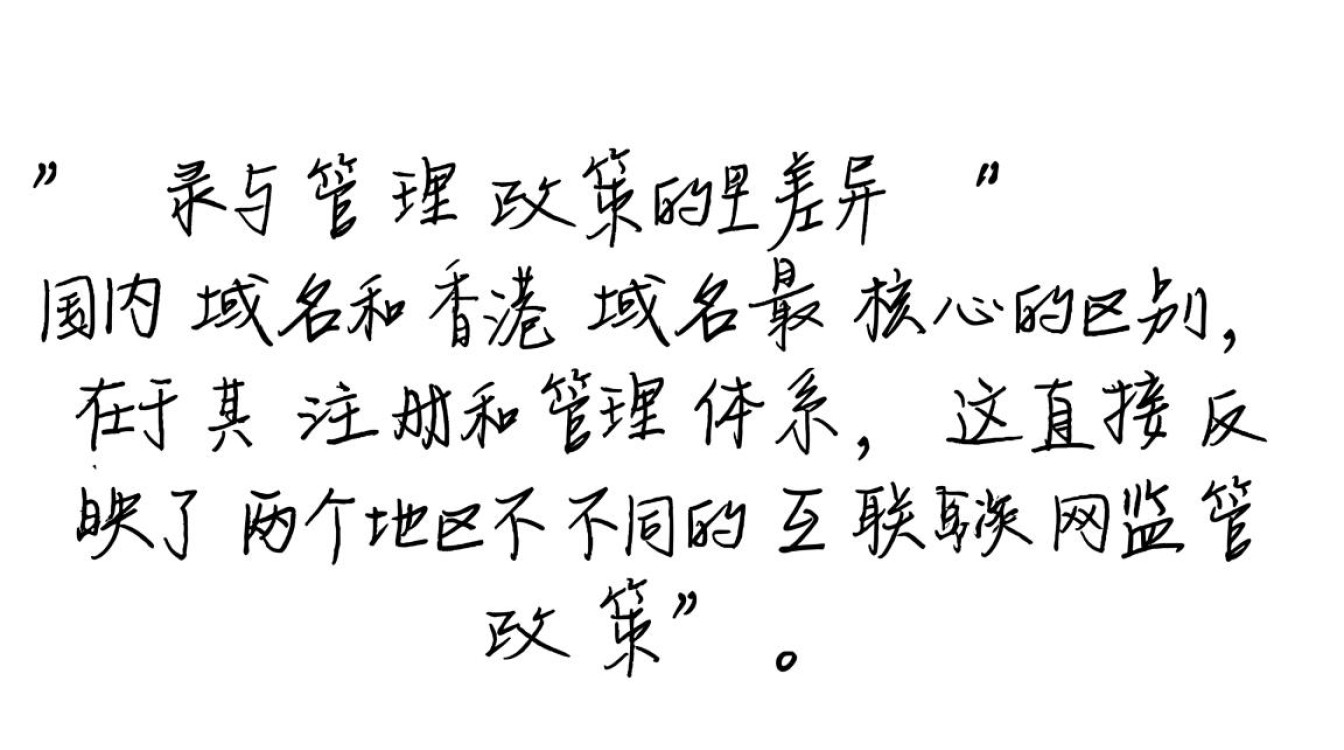 ” 录与管理政策的差异 “
国内域名和香港域名最核心的区别，
在于其注册和管理体系，这直接反
映了两个地区不不同的互联网监管
政策”。